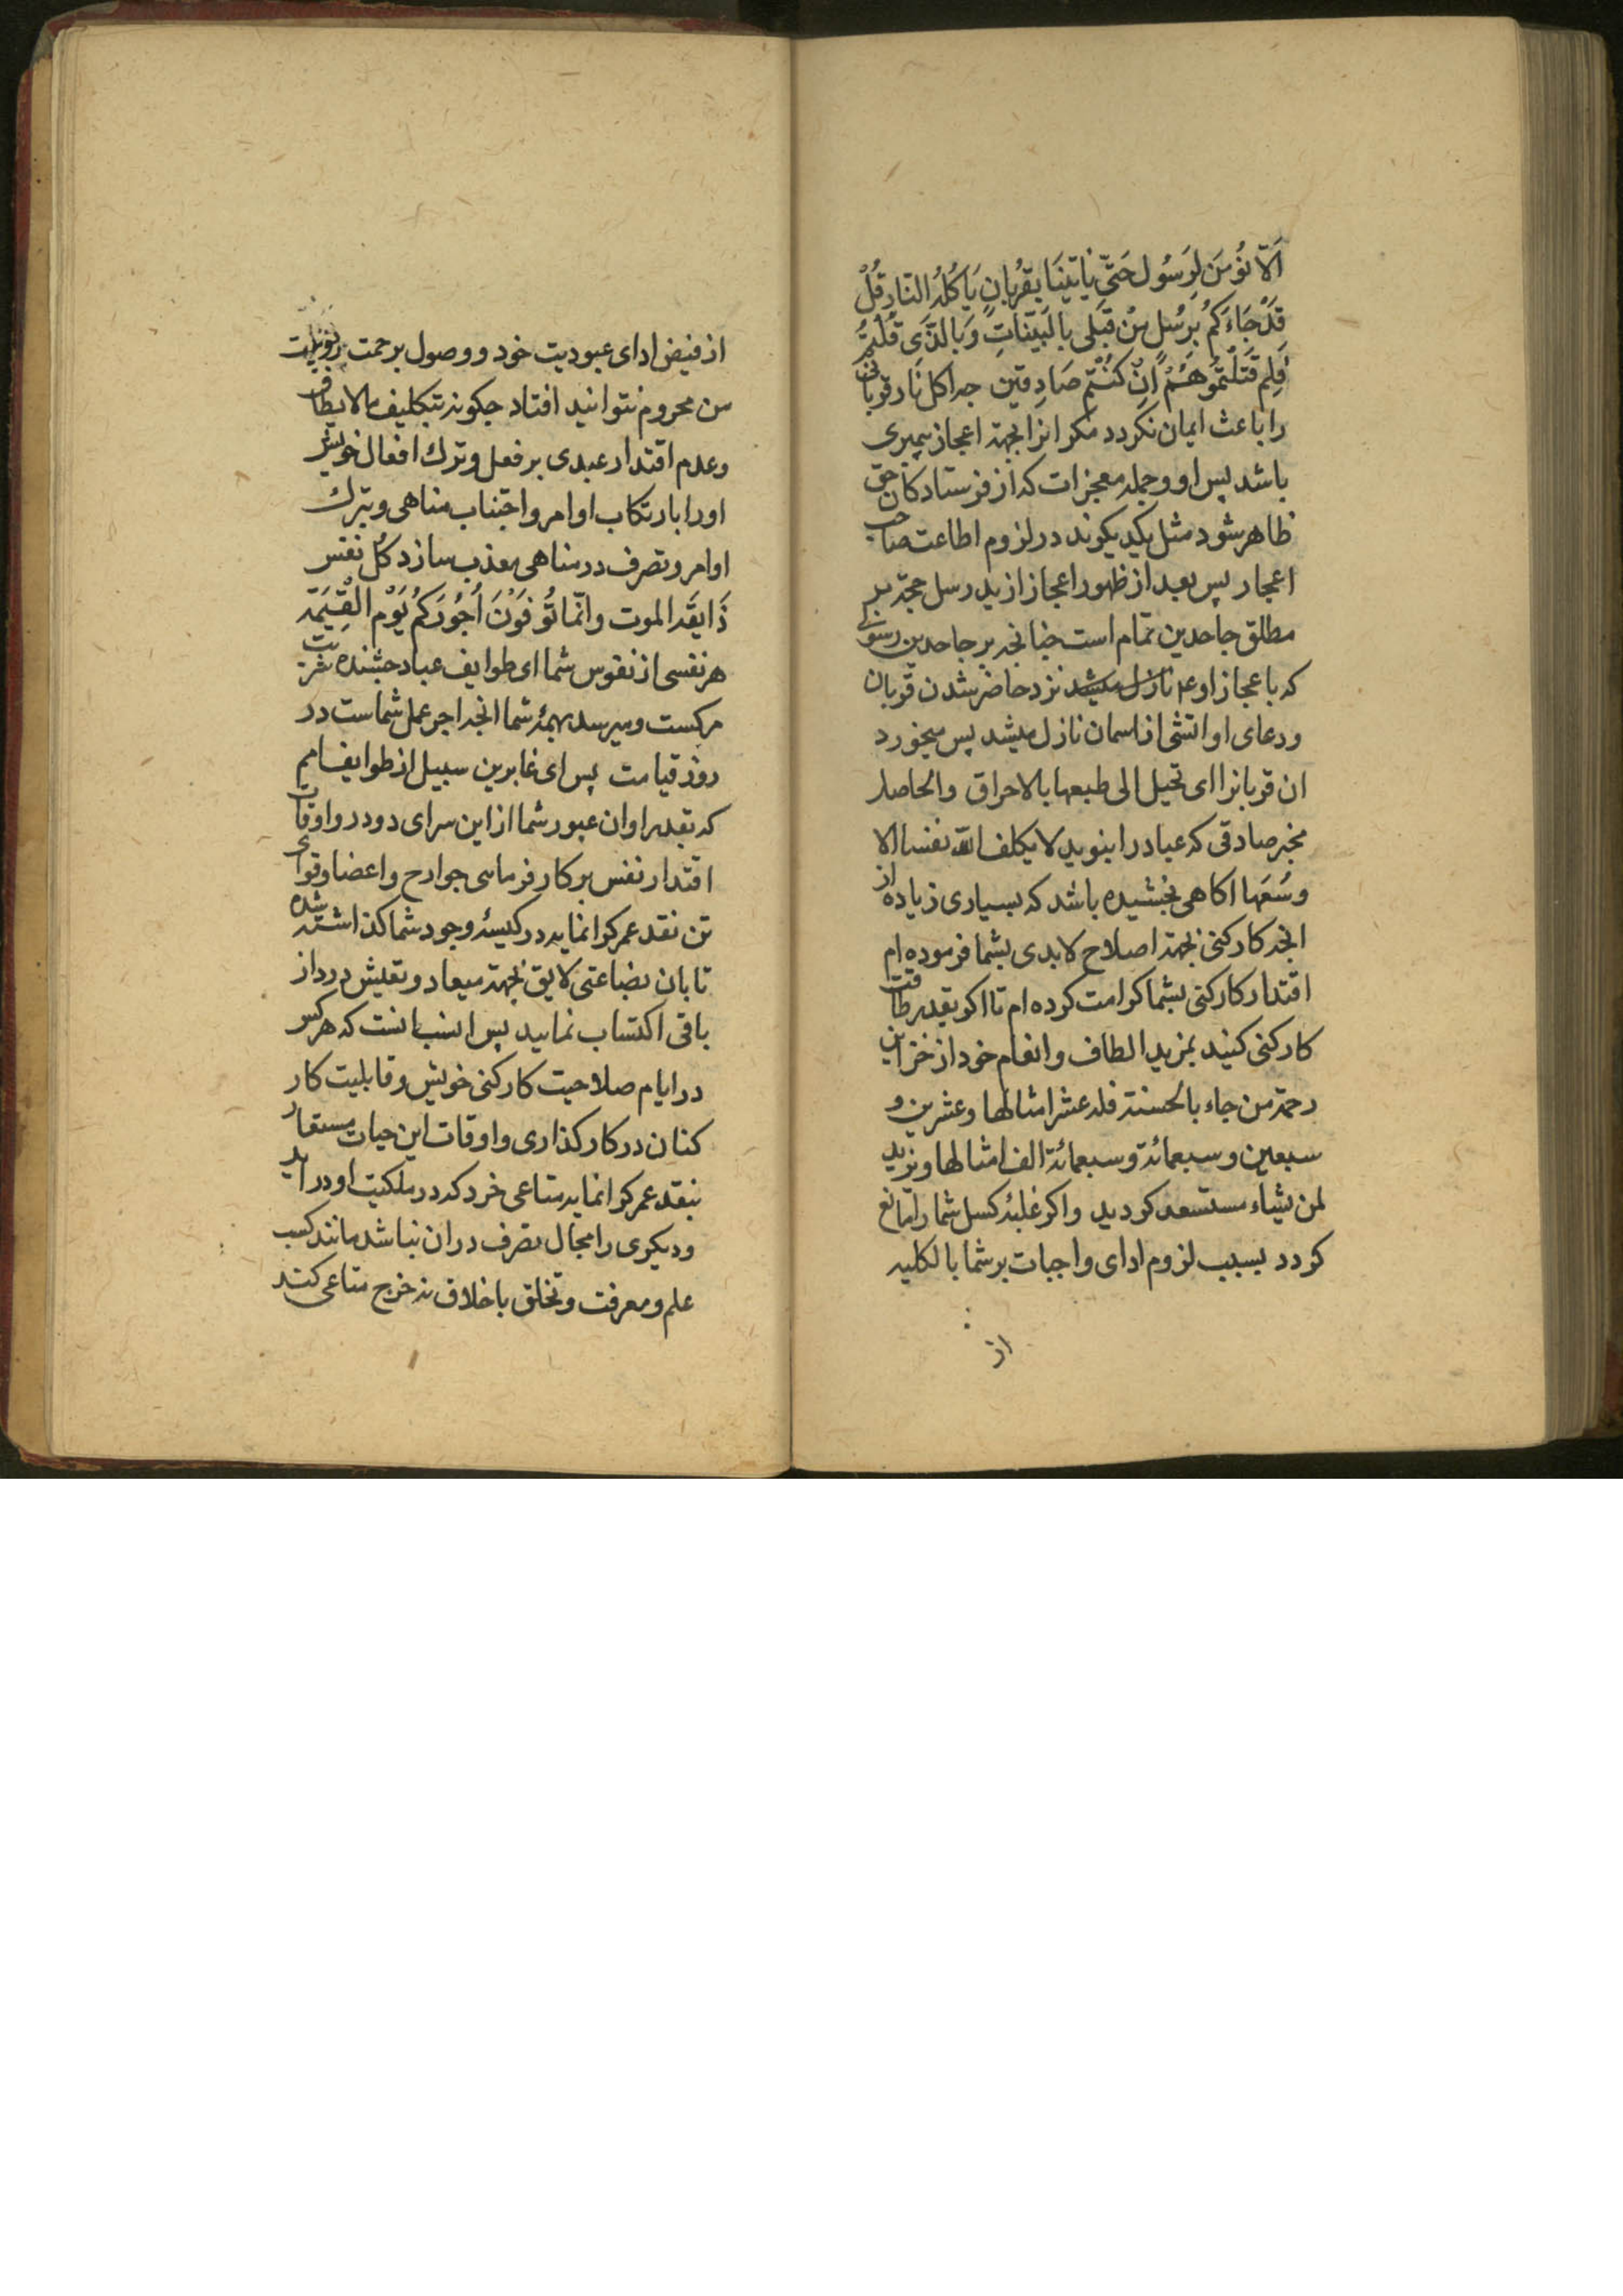 اَلّا نُؤمِنَ لِرَسُول حَتّی یَاتِیَنَا بِقُربَانٍ یَاکُلُهُ النّار قُلْ
قَدْ جَاءَکُمْ رُسُل مِنْ قَبْلی بِالْبَیّنَاتِ وَ بِالَّذی قُلْتُمْ
فَلِمَ قَتَلْتُمُوهُمْ اِنْ کُنْتُم صَادِقین چه اکل نار قربانی
را باعث ایمان نکردد مکر انرا بجهة اعجاز پیمبری
باشد پس او و جمله معجزات که از فرستادکان حق
ظاهر شود مثل یکدیکرند در لزوم اطاعت صاحب
اعجاز پس بعد از ظهور اعجاز از ید رسل حجة بر
مطلق جاحدین تمام است چنانچه بر جاحدین رسولی
که با عجاز او ع نازل میشد نزد حاضر شدن قربان
و دعای او اتشی از اسمان نازل میشد پس میخورد
ان قربانرا ای تحیل الی طبعها بالاحراق والحاصل
مخبر صادقی که عباد را بنوید لا یکلف الله نفسا الا
وسعها اکاهی بخشیده باشد که بسیاری زیاده از
انچه کارکنی بجهة اصلاح لابدی بشما فرموده ام
اقتدار کارکنی بشما کرامت کرده ام تا اکر بقدر طاقت
کارکنی کنید بمزید الطاف و انعام خود از خزاین
رحمة من جاء بالحسنة فله عشر امثالها و عشرین و
سبعین و سبعمائة و سبعمائة الف امثالها و نزید
لمن یشاء مستسعد کردید و اکر غلبۀ کسل شما را مانع
کردد بسبب لزوم ادای واجبات بر شما بالکلیه
از
از فیض ادای عبودیت خود و وصول برحمت ربوبیت
من محروم نتوانید افتاد چکونه بتکلیف مالا یطاق
و عدم اقتدار عبدی بر فعل و ترك افعال خویش
او را بارتکاب اوامر و اجتناب مناهی و بترك
اوامر و تصرف در مناهی معذب سازد کُل نفس
ذَایقَة الموت و انّما تُوَفَّوْنَ اُجُورَکُمْ یَوْم الْقِیٰمَة
هر نفسی از نفوس شما ای طوایف عباد چشنده شربت
مرکست و میرسد بهمۀ شما انچه اجر عمل شماست در
روز قیامت پس ای عابرین سبیل از طوایف امم
که بقدر اوان عبور شما از این سرای دودر و اوقات
اقتدار نفس بر کار فرمایی جوارح و اعضا و قوای
تن نقد عمر کرانمایه در کیسۀ وجود شما کذاشته شده
تا بان بضاعتی لایق بجهة میعاد و تعیش در دار
باقی اکتساب نمایید پس انسب انست که هر کس
در ایام صلاحیت کارکنی خویش و قابلیت کار
کنان در کار کذاری و اوقات این حیات مستعار
بنقد عمر کرانمایه متاعی خرد که در ملکیت او در اید
و دیکری را مجال تصرف در ان نباشد مانند کسب
علم و معرفت و تخلق باخلاق نه خرج متاعی کند